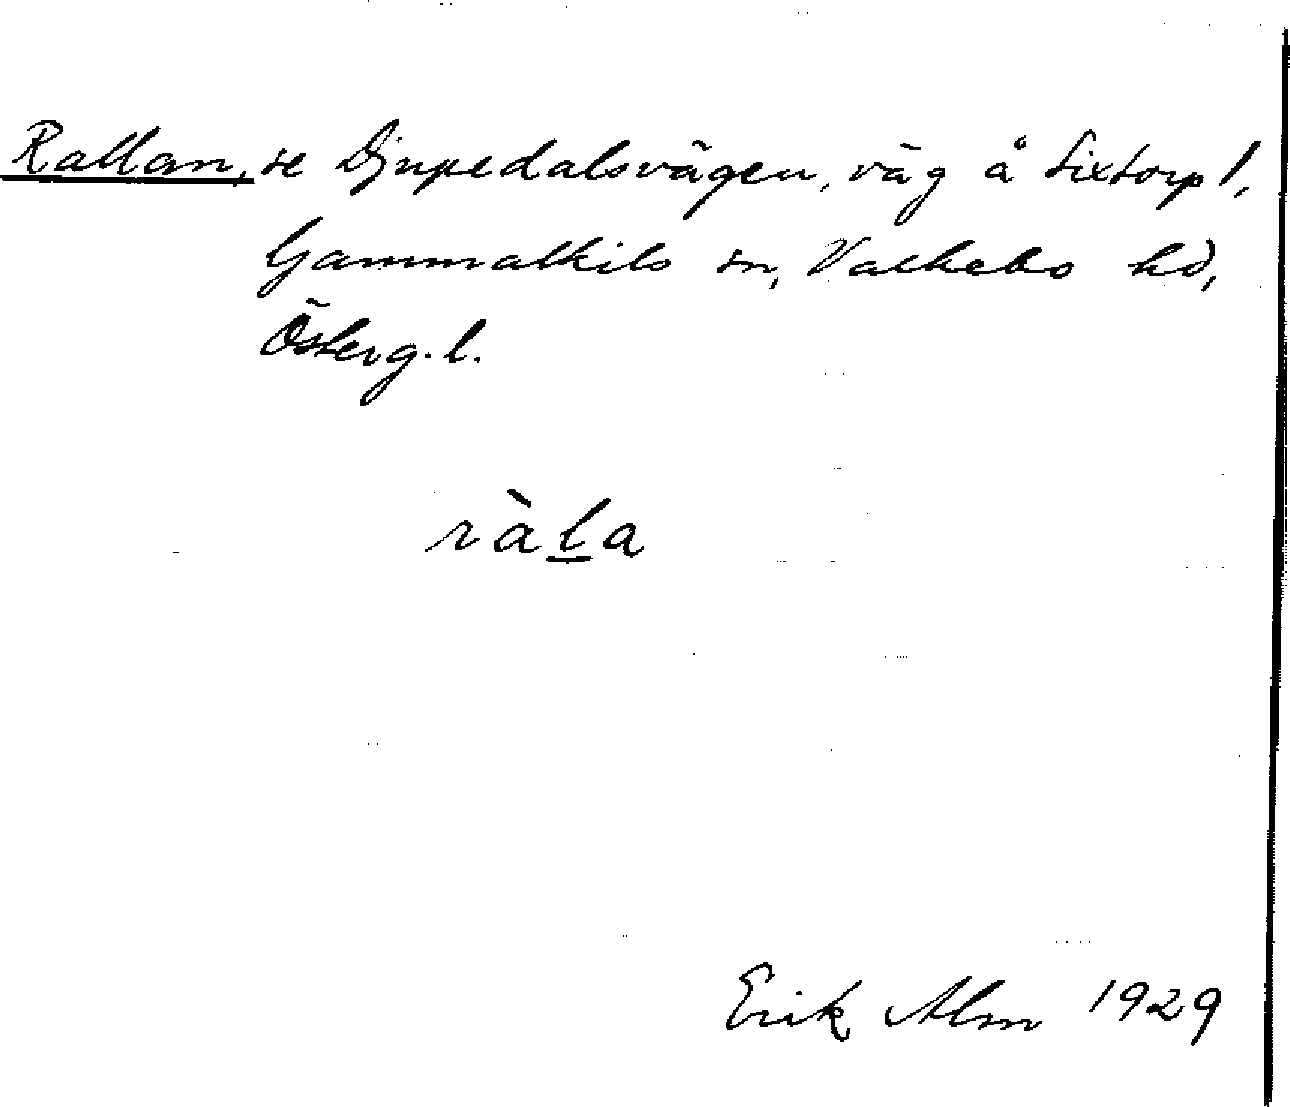 Rallan, se Djupedalsvägen, väg å Sixtorp 1,
Gammalkils sn, Valkebo hd,
Österg. l.
ràl̲a
Erik Alm 1929